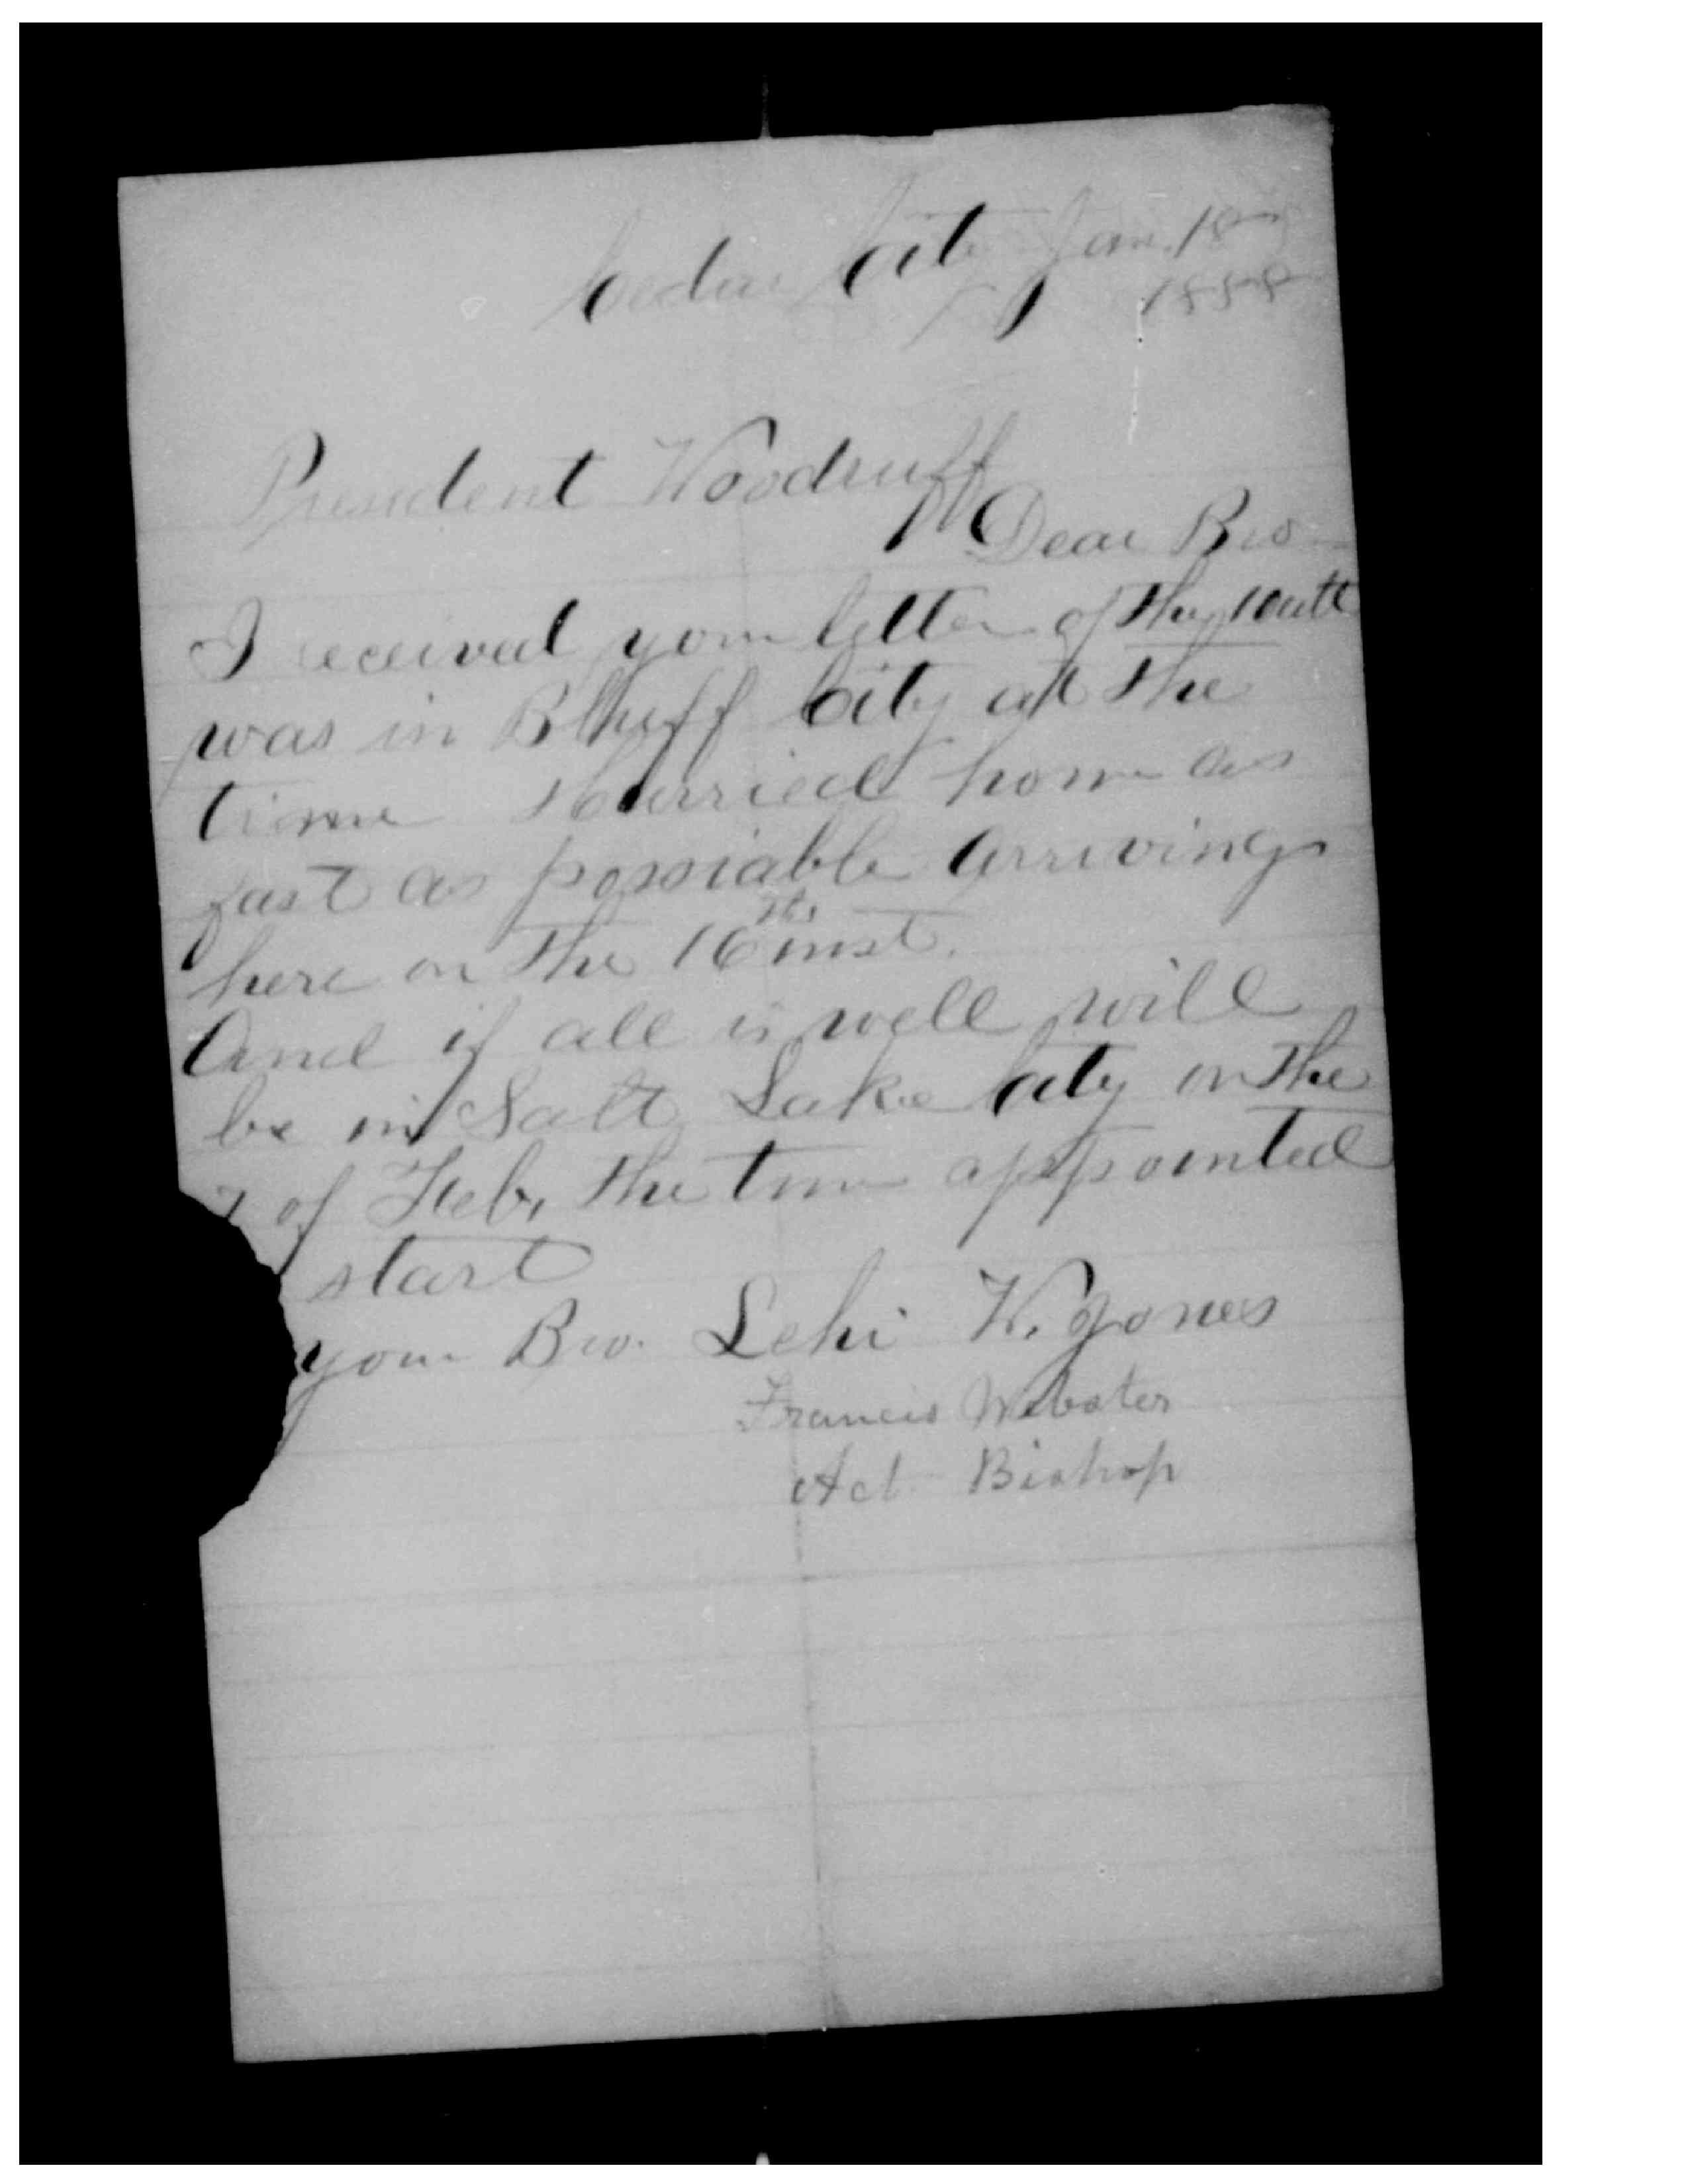 Cedar City Jan. 18
1888
President Woodruff
Dear Bro
I received your letter of the
was in Bluff City at the
time Hurried home as
fast as possiable arriving
here on the 16th inst.
And if all is well will
be in Salt Lake City on the
of Feb, the time appointed
start
your Bro. Lehi W. Jones
Francis Webster
Act. Bishop